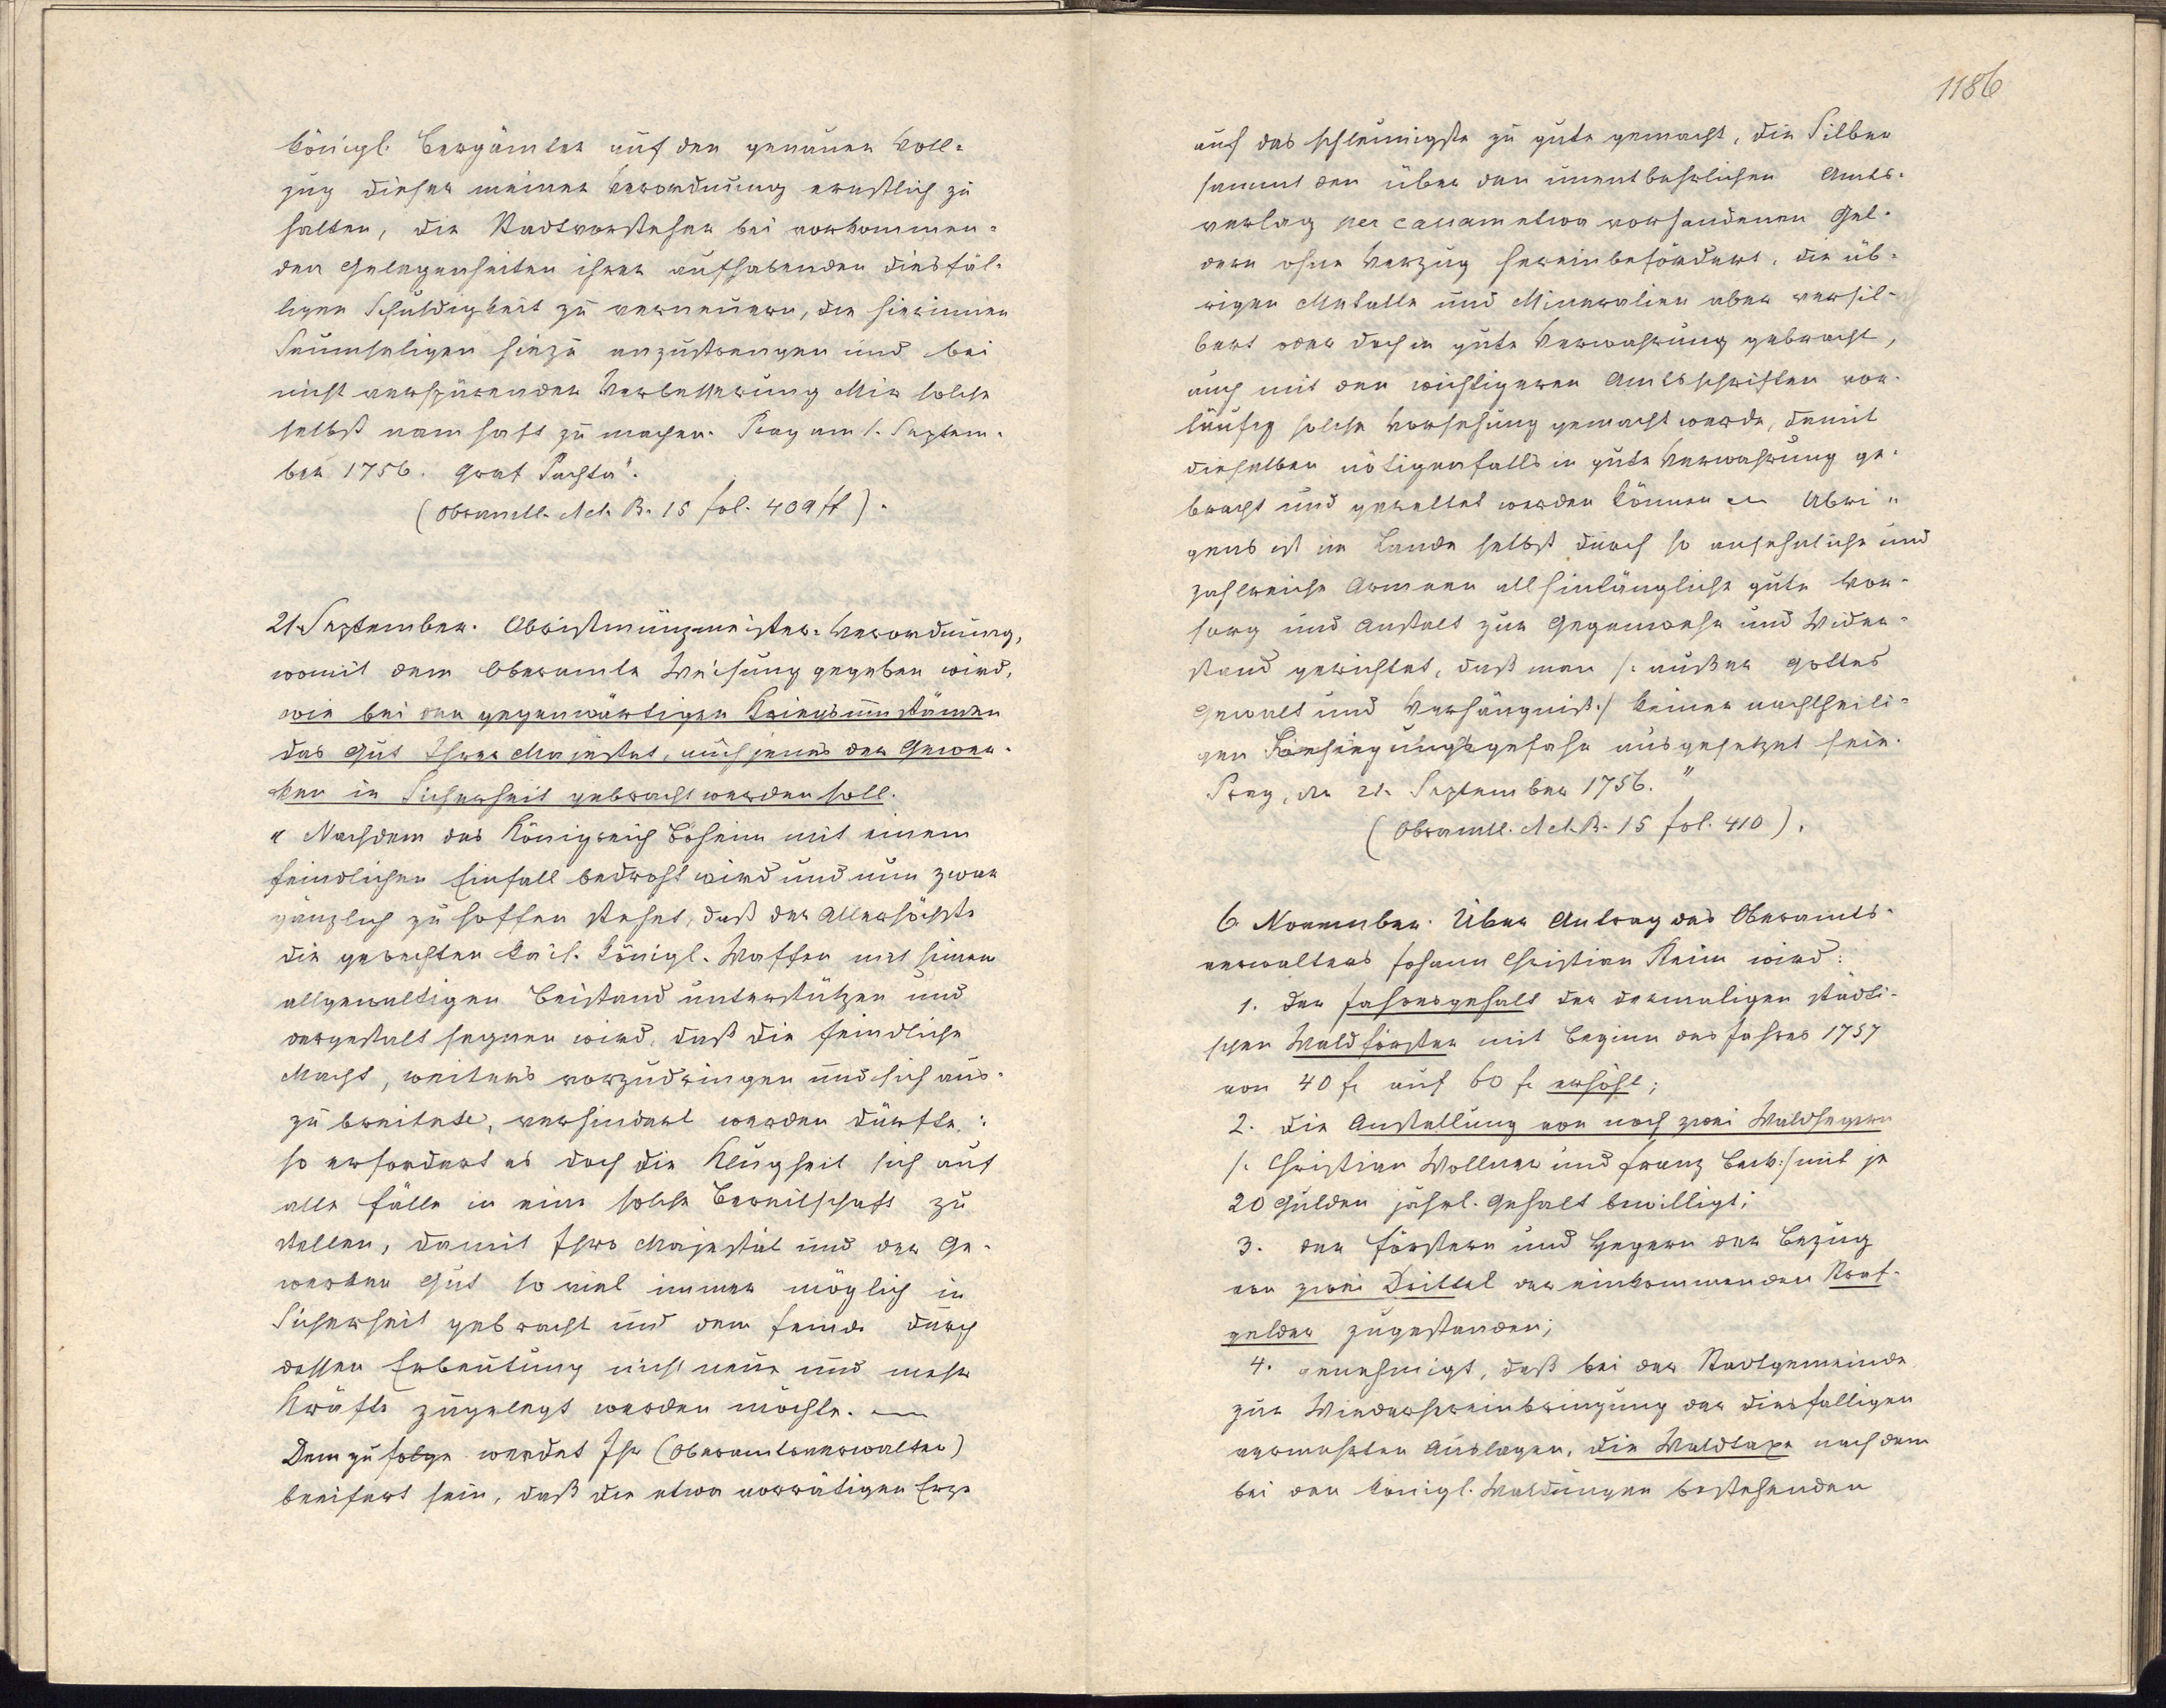 königl. Bergämter auf den genauen Voll-
zug dieser meiner Verordnung ernstlich zu
halten, die Stadtvorsteher bei vorkommen-
den Gelegenheiten ihrer aufhabenden diesfäl-
ligen Schuldigkeit zu erneuern, die hierinnen
Saumseligen hiezu anzustrengen und bei
nicht verspürender Verbesserung Mir solche
selbst namhaft zu machen. Prag am 1. Septem-
ber 1756. Graf Pachta".
(Obramtl. Act. B. 15 fol. 409 ff).
21. September. Obristmünzmeister-Verordnung,
womit dem Oberamte Weisung gegeben wird,
wie bei den gegenwärtigen Kriegsumständen
das Gut Ihrer Majestät, auch jenes der Gewer-
ken in Sicherheit gebracht werden soll.
"Nachdem das Königreich Böheim mit einem
feindlichen Einfall bedroht wird und nun zwar
gänzlich zu hoffen stehet, daß der Allerhöchste
die gerechten kais. königl. Waffen mit seinem
allgewaltigen Beistand unterstützen und
dergestalt segnen wird, daß die feindliche
Macht, weiters vorzudringen und sich aus-
zubreiten, verhindert werden dürfte:
so erfordert es doch die Klugheit sich auf
alle Fälle in eine solche Bereitschaft zu
stellen, damit Ihro Majestät und der Ge-
werken Gut so viel immer möglich in
Sicherheit gebracht und dem Feinde durch
dessen Erbeutung nicht neue und mehr
Kräfte zugelegt werden möchte. —
Demzufolge werdet Ihr (Oberamtsverwalter)
beeifert sein, daß die etwa vorrätigen Erze
1186
auf das schleunigste zu gute gemacht, die Silber
sammt den über den unentbehrlichen Amts-
verlag per cassam etwa vorhandenen Gel-
dern ohne Verzug hereinbefördert, die üb-
rigen Metalle und Mineralien aber versil-
bert oder doch in gute Verwahrung gebracht,
auch mit den wichtigeren Amtsschriften vor-
läufig solche Vorsehung gemacht werde, damit
dieselben nötigenfalls in gute Verwahrung ge-
bracht und gerettet werden können — Übri-
gens ist im Lande selbst durch so ansehnliche und
zahlreiche Armeen all hinlängliche gute Vor-
sorg und Anstalt zur Gegenwehr und Wider-
stand gerichtet, daß man /: außer Gottes
Gewalt und Verhängniß :/ keiner nachtheili-
gen Besiegungsgefahr ausgesetzet sein.
Prag, den 21. September 1756."
(Obramtl. Act. B. 15 fol. 410).
6. November. Über Antrag des Oberamts-
verwalters Johann Christian Keim wird:
1. der Jahresgehalt der dermaligen städti-
schen Waldförster mit Beginn des Jahres 1757
von 40 fl auf 60 fl erhöht;
2. die Anstellung von noch zwei Waldhegern
/: Christian Wollner und Franz Beck :/ mit je
20 Gulden jährl. Gehalt bewilligt;
3. den Förstern und Hegern der Bezug
von zwei Drittel der einkommenden Straf-
gelder zugestanden;
4. genehmigt, daß bei der Stadtgemeinde
zur Wiederhereinbringung der diesfälligen
vermehrten Auslagen, die Waldtaxe nach dem
bei den königl. Waldungen bestehenden